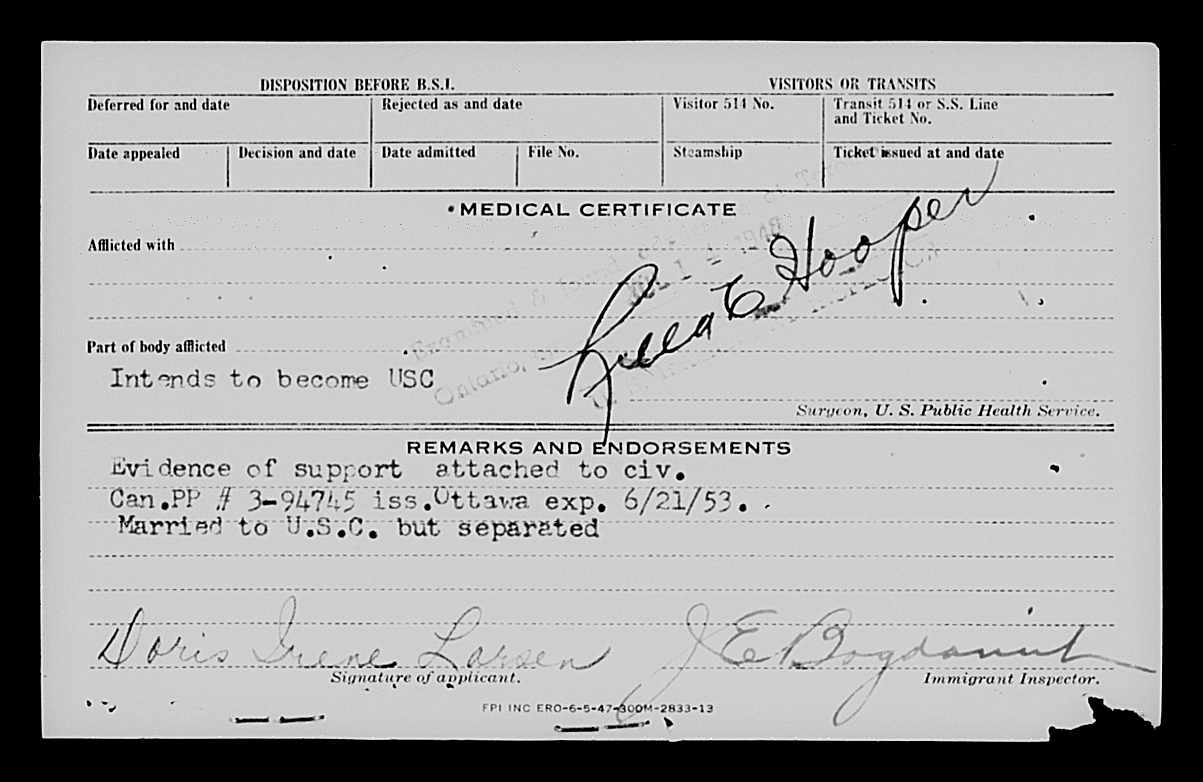 DISPOSITION BEFORE B.S.I. VISITORS OR TRANSITS
Deferred for and date Rejected as and date Visitor 514 No. Transit 514 or S.S. Line
and Ticket No.
Date appealed Decision and date Date admitted File No. Steamship Ticket issued at and date
MEDICAL CERTIFICATE
Afflicted with
Hooper
Part of body afflicted
Intends to become USC
Ontario,
Surgeon, U. S. Public Health Service.
REMARKS AND ENDORSEMENTS
Evidence of support attached to civ.
Can.PP # 3-94745 iss.Ottawa exp. 6/21/53.
Married to U.S.C. but separated
Doris Irene Larsen J E
Signature of applicant. Immigrant Inspector.
FPI INC ERO-6-5-47-300M-2833-13